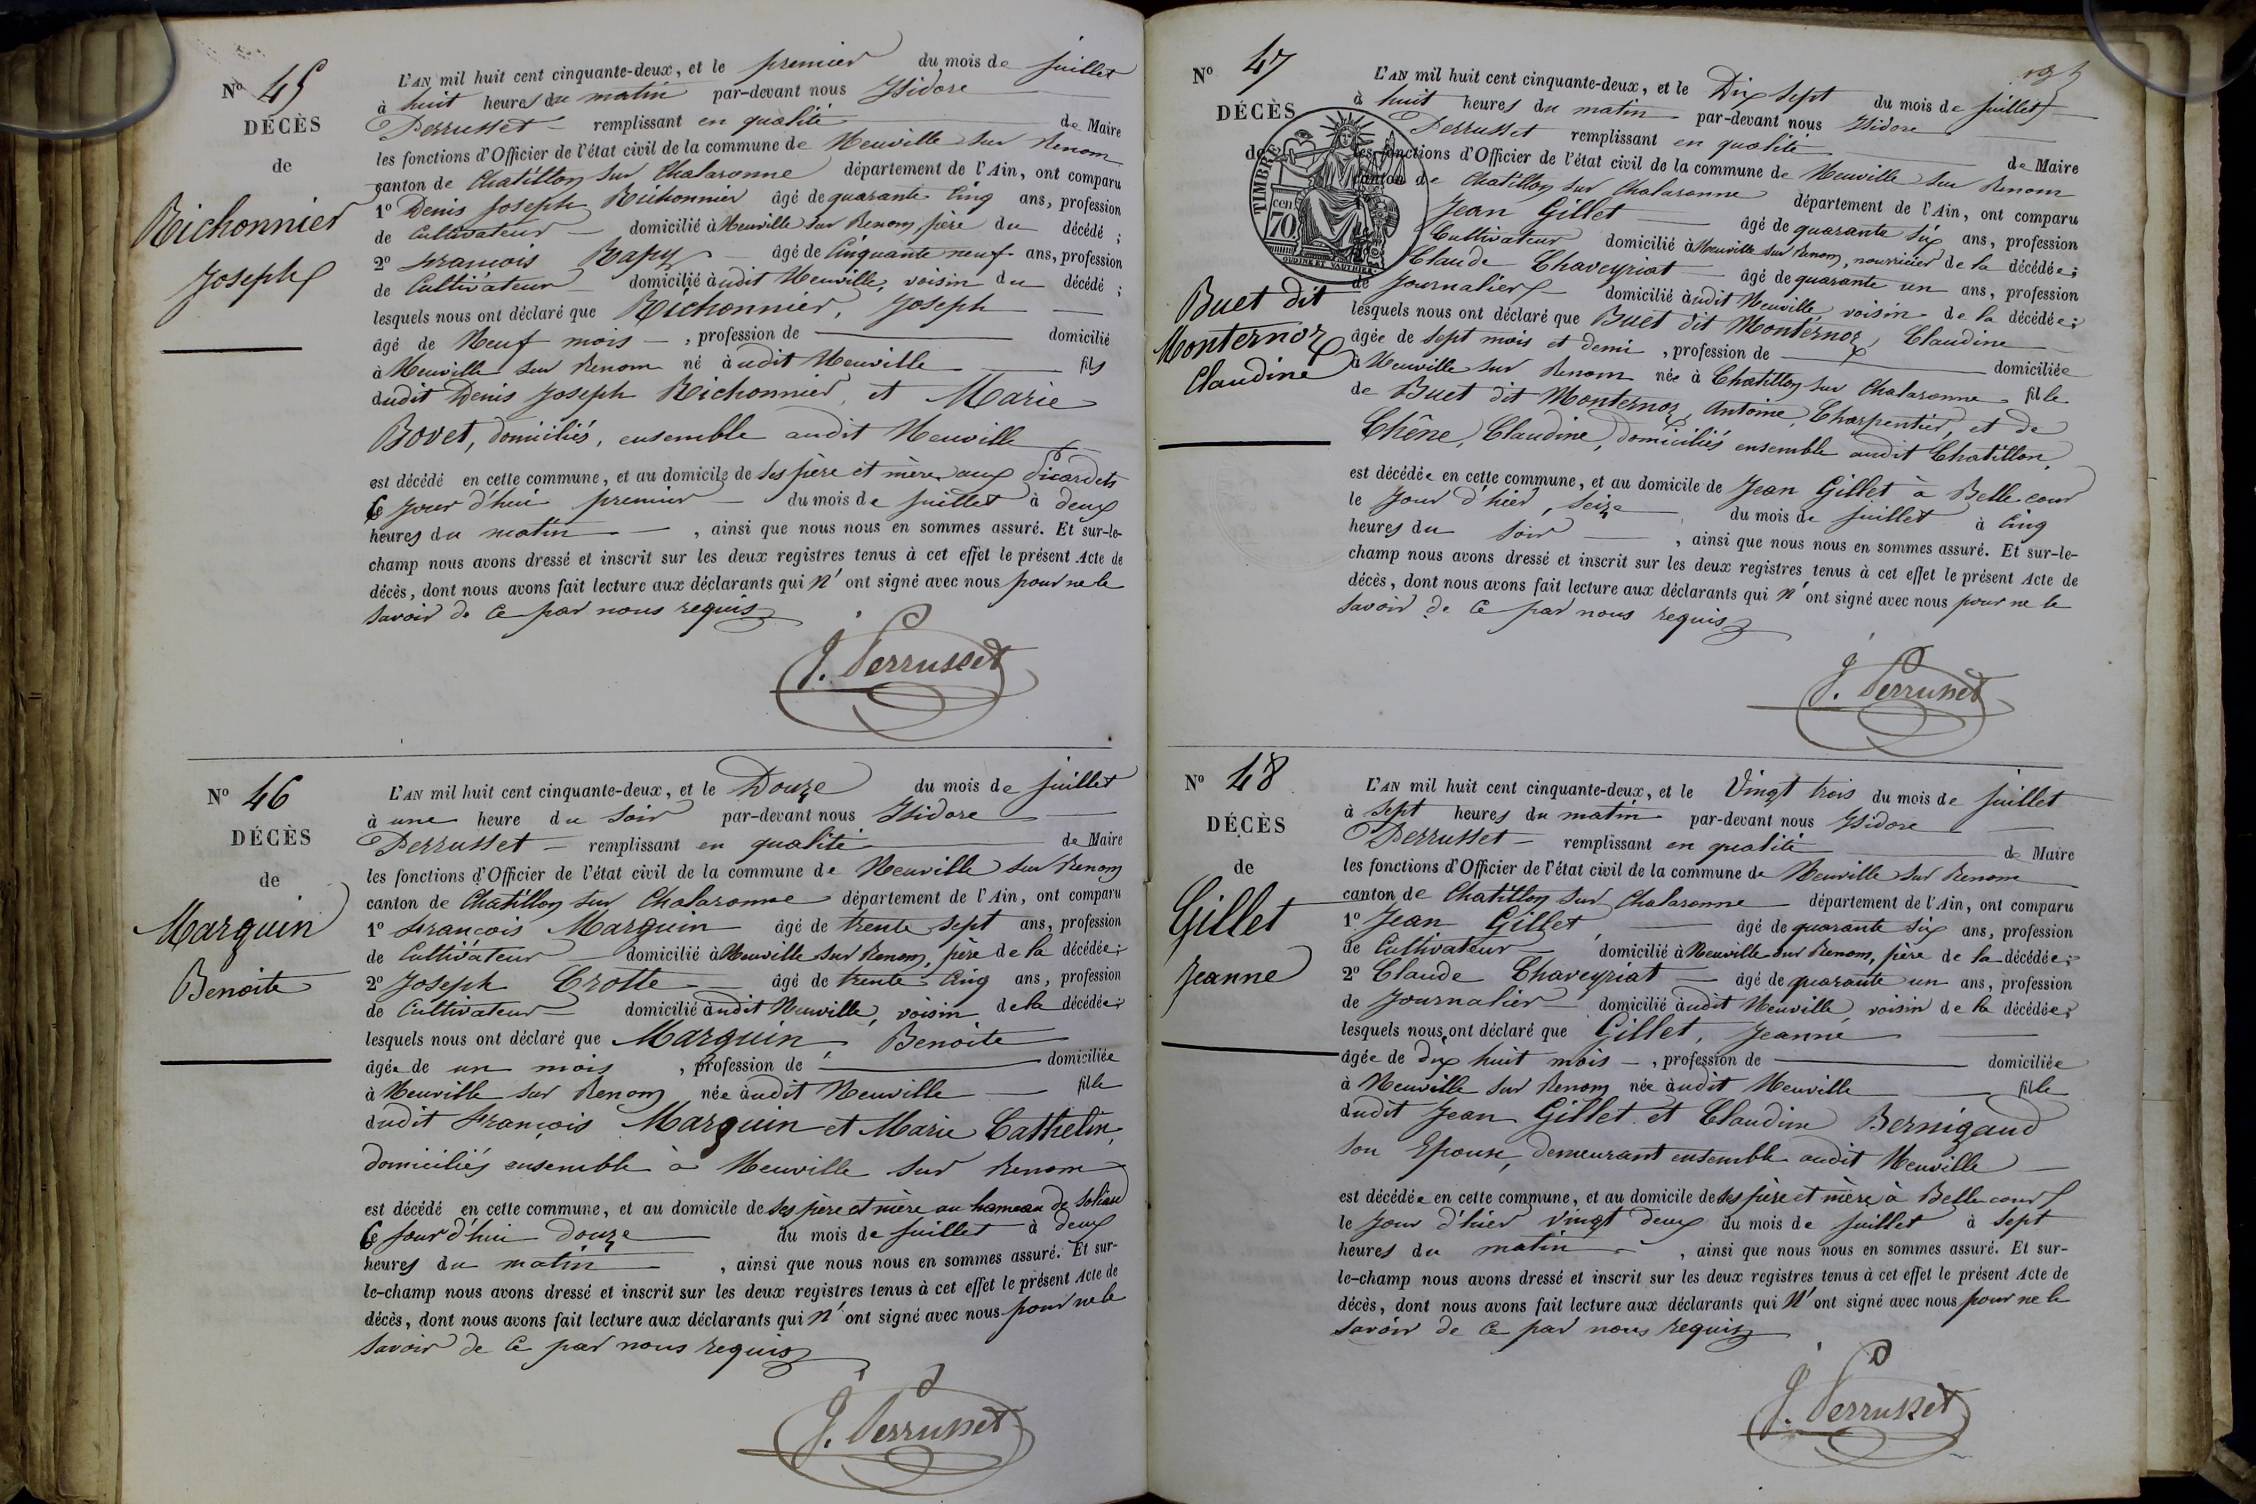 Nº 45
DÉCÈS
de
Richonnier
Joseph
L'AN mil huit cent cinquante-deux, et le premier du mois de juillet
à huit heures du matin par-devant nous Isidore
Perrusset remplissant en qualité de Maire
les fonctions d'Officier de l'état civil de la commune de Neuville sur Renom
canton de Chatillon sur Chalaronne département de l'Ain, ont comparu
1º Denis Joseph Richonnier âgé de quarante Cinq ans, profession
de Cultivateur domicilié à Neuville sur Renom, père du décédé ;
2º François Rapy âgé de Cinquante neuf ans, profession
de Cultivateur domicilié audit Neuville, voisin du décédé ;
lesquels nous ont déclaré que Richonnier, Joseph
âgé de Neuf mois , profession de domicilié
à Neuville sur Renom né audit Neuville fils
dudit Denis Joseph Richonnier, et Marie
Bovet, domiciliés, ensemble audit Neuville
est décédé en cette commune, et au domicile de Ses père et mère aux Picardets
Ce jour d'hui premier du mois de juillet à deux
heures du matin , ainsi que nous nous en sommes assuré. Et sur-le-
champ nous avons dressé et inscrit sur les deux registres tenus à cet effet le présent Acte de
décès, dont nous avons fait lecture aux déclarants qui n'ont signé avec nous pour ne le
savoir de ce par nous requis
J. Perrusset
Nº 46
DÉCÈS
de
Marguin
Benoite
L'AN mil huit cent cinquante-deux, et le Douze du mois de juillet
à une heure du soir par-devant nous Isidore
Perrusset remplissant en qualité de Maire
les fonctions d'Officier de l'état civil de la commune de Neuville sur Renom
canton de Chatillon sur Chalaronne département de l'Ain, ont comparu
1º François Marguin âgé de trente sept ans, profession
de Cultivateur domicilié à Neuville sur Renom, père de la décédée ;
2º Joseph Crotte âgé de trente Cinq ans, profession
de Cultivateur domicilié audit Neuville, voisin de la décédée ;
lesquels nous ont déclaré que Marguin, Benoite
âgée de un mois , profession de domiciliée
à Neuville sur Renom née audit Neuville fille
dudit François Marguin et Marie Cathelin,
domiciliés ensemble à Neuville sur Renom
est décédé en cette commune, et au domicile de Ses père et mère au hameau de
Ce jour d'hui douze du mois de juillet à deux
heures du matin , ainsi que nous nous en sommes assuré. Et sur-
le-champ nous avons dressé et inscrit sur les deux registres tenus à cet effet le présent Acte de
décès, dont nous avons fait lecture aux déclarants qui n'ont signé avec nous pour ne le
savoir de ce par nous requis
J. Perrusset
Nº 47
DÉCÈS
de
Buet dit
Monternoz
Claudine
TIMBRE
cen
70
OUDINE ET VAUTHIER
L'AN mil huit cent cinquante-deux, et le Dix sept du mois de juillet
à huit heures du matin par-devant nous Isidore
Perrusset remplissant en qualité de Maire
les fonctions d'Officier de l'état civil de la commune de Neuville sur Renom
canton de Chatillon sur Chalaronne département de l'Ain, ont comparu
Jean Gillet âgé de quarante Six ans, profession
Cultivateur domicilié à Neuville sur Renom, nourricier de la décédée ;
Claude Chaveyriat âgé de quarante un ans, profession
de Journalier domicilié audit Neuville, voisin de la décédée ;
lesquels nous ont déclaré que Buet dit Monternoz, Claudine
âgée de sept mois et demi , profession de domiciliée
à Neuville sur Renom née à Chatillon sur Chalaronne fille
de Buet dit Monternoz, Antoine, Charpentier, et de
Chêne, Claudine, domiciliés ensemble audit Chatillon,
est décédée en cette commune, et au domicile de Jean Gillet à Belle cour
le jour d'hier, seize du mois de juillet à Cinq
heures du soir , ainsi que nous nous en sommes assuré. Et sur-le-
champ nous avons dressé et inscrit sur les deux registres tenus à cet effet le présent Acte de
décès, dont nous avons fait lecture aux déclarants qui n'ont signé avec nous pour ne le
savoir de ce par nous requis
J. Perrusset
Nº 48
DÉCÈS
de
Gillet
Jeanne
L'AN mil huit cent cinquante-deux, et le Vingt trois du mois de juillet
à sept heures du matin par-devant nous Isidore
Perrusset remplissant en qualité de Maire
les fonctions d'Officier de l'état civil de la commune de Neuville sur Renom
canton de Chatillon sur Chalaronne département de l'Ain, ont comparu
1º Jean Gillet, âgé de quarante Six ans, profession
de Cultivateur domicilié à Neuville sur Renom, père de la décédée ;
2º Claude Chaveyriat âgé de quarante un ans, profession
de Journalier domicilié audit Neuville voisin de la décédée ;
lesquels nous ont déclaré que Gillet, Jeanne
âgée de dix huit mois , profession de domiciliée
à Neuville sur Renom née audit Neuville fille
dudit Jean Gillet et Claudine Bernigaud
son Epouse, demeurant ensemble audit Neuville
est décédée en cette commune, et au domicile de Ses père et mère à Belle cour
le jour d'hier vingt deux du mois de juillet à sept
heures du matin , ainsi que nous nous en sommes assuré. Et sur-
le-champ nous avons dressé et inscrit sur les deux registres tenus à cet effet le présent Acte de
décès, dont nous avons fait lecture aux déclarants qui n'ont signé avec nous pour ne le
savoir de ce par nous requis
J. Perrusset